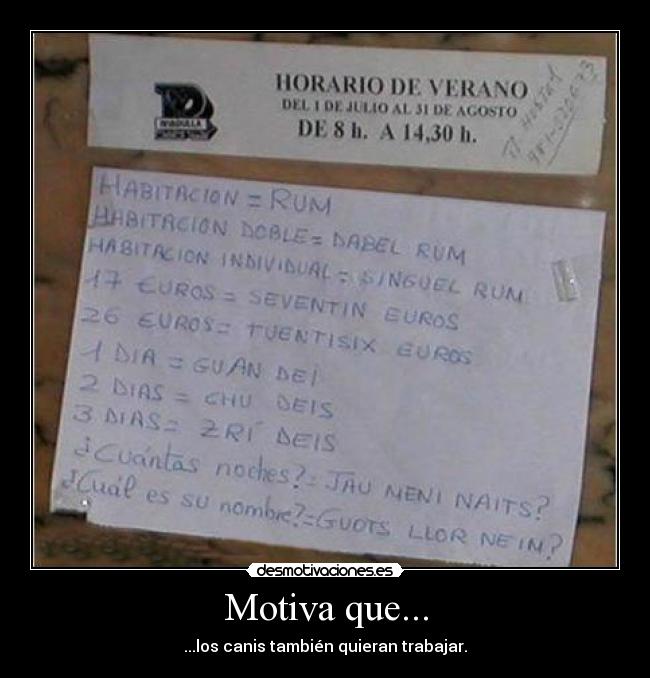 HORARIO DE VERANO
DEL 1 DE JULIO AL 31 DE AGOSTO
DE 8 h. A 14,30 h.
HABITACION = RUM
HABITACION DOBLE = DABEL RUM
HABITACION INDIVIDUAL = SINGUEL RUM
17 EUROS = SEVENTIN EUROS
26 EUROS = TUENTISIX EUROS
1 DIA = GUAN DEI
2 DIAS = CHU DEIS
3 DIAS = ZRÍ DEIS
¿Cuántas noches? = JAU MENI NAITS?
¿Cuál es su nombre? = GUOTS LLOR NEIM?
desmotivaciones.es
Motiva que...
...los canis también quieran trabajar.